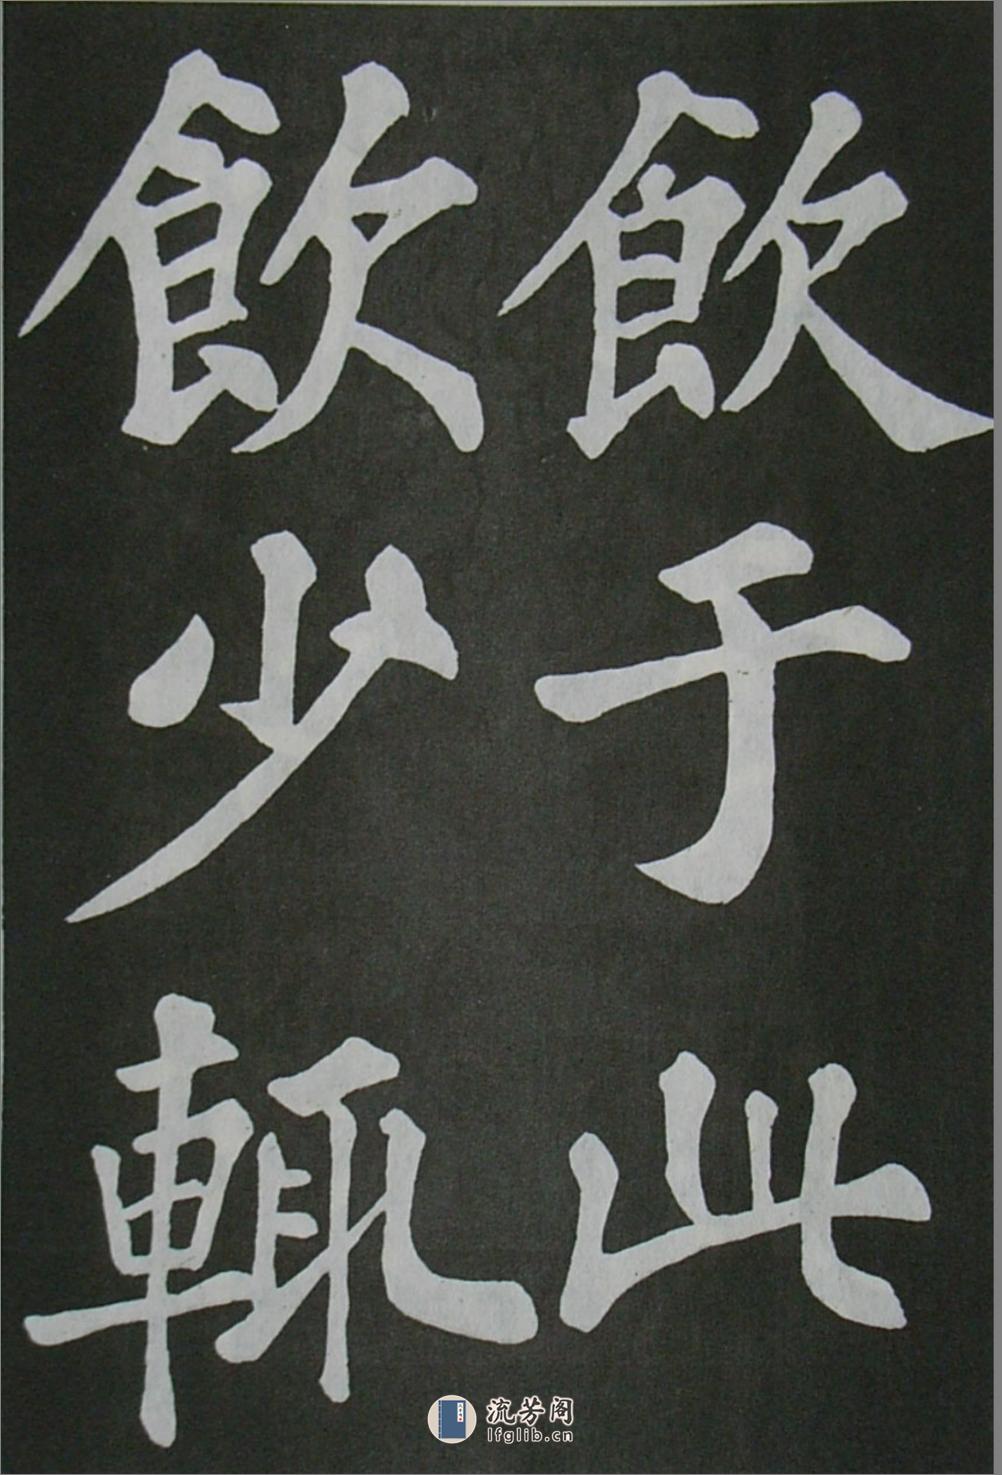 飲于此
飲少輒
流芳阁
lfglib.cn